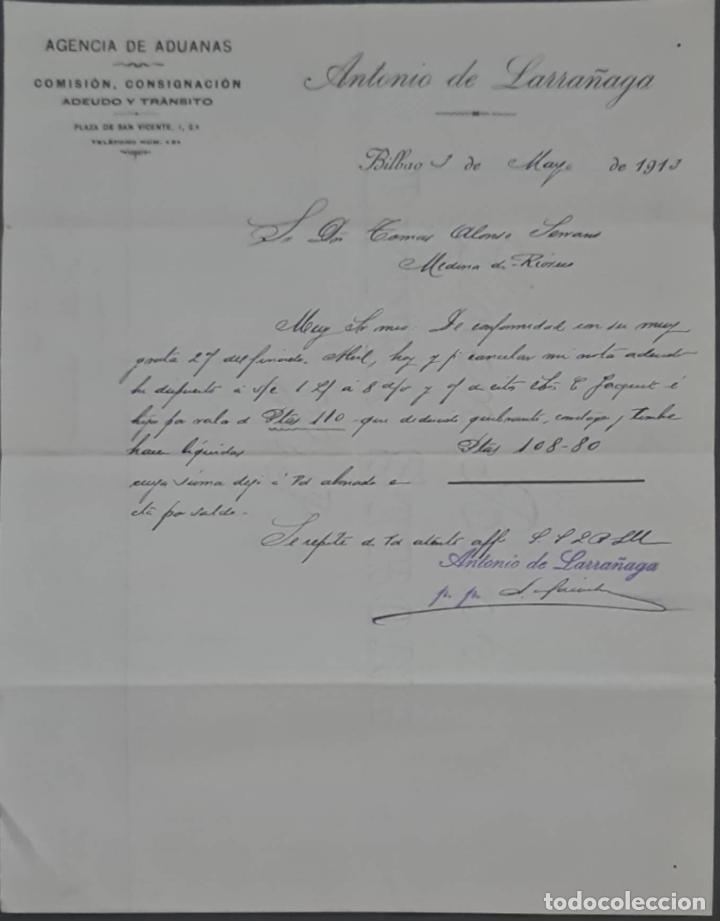 AGENCIA DE ADUANAS
COMISIÓN, CONSIGNACIÓN
ADEUDO Y TRÁNSITO
PLAZA DE SAN VICENTE, 1, 2.º
TELÉFONO NÚM.
Antonio de Larrañaga
Bilbao 3 de Mayo de 1913
Sr Dn Tomas Alonso Serrano
Medina de Rioseco
Muy Sr mio: De conformidad con su muy
grata 27 del finado Abril, hoy y pª cancelar mi nota adeudo
he dispuesto á s/c 1 L/ á 8 d/v y o/ de estos Sres E Jacquet é
hijo por valor de Ptas 110 que deducido quebranto, y timbre
hacen líquidas Ptas 108-80
cuya suma dejo á Vd abonado e
cta por saldo.
Se repite de Vd atento affmo S S Q B S M
Antonio de Larrañaga
p. p.
todocoleccion